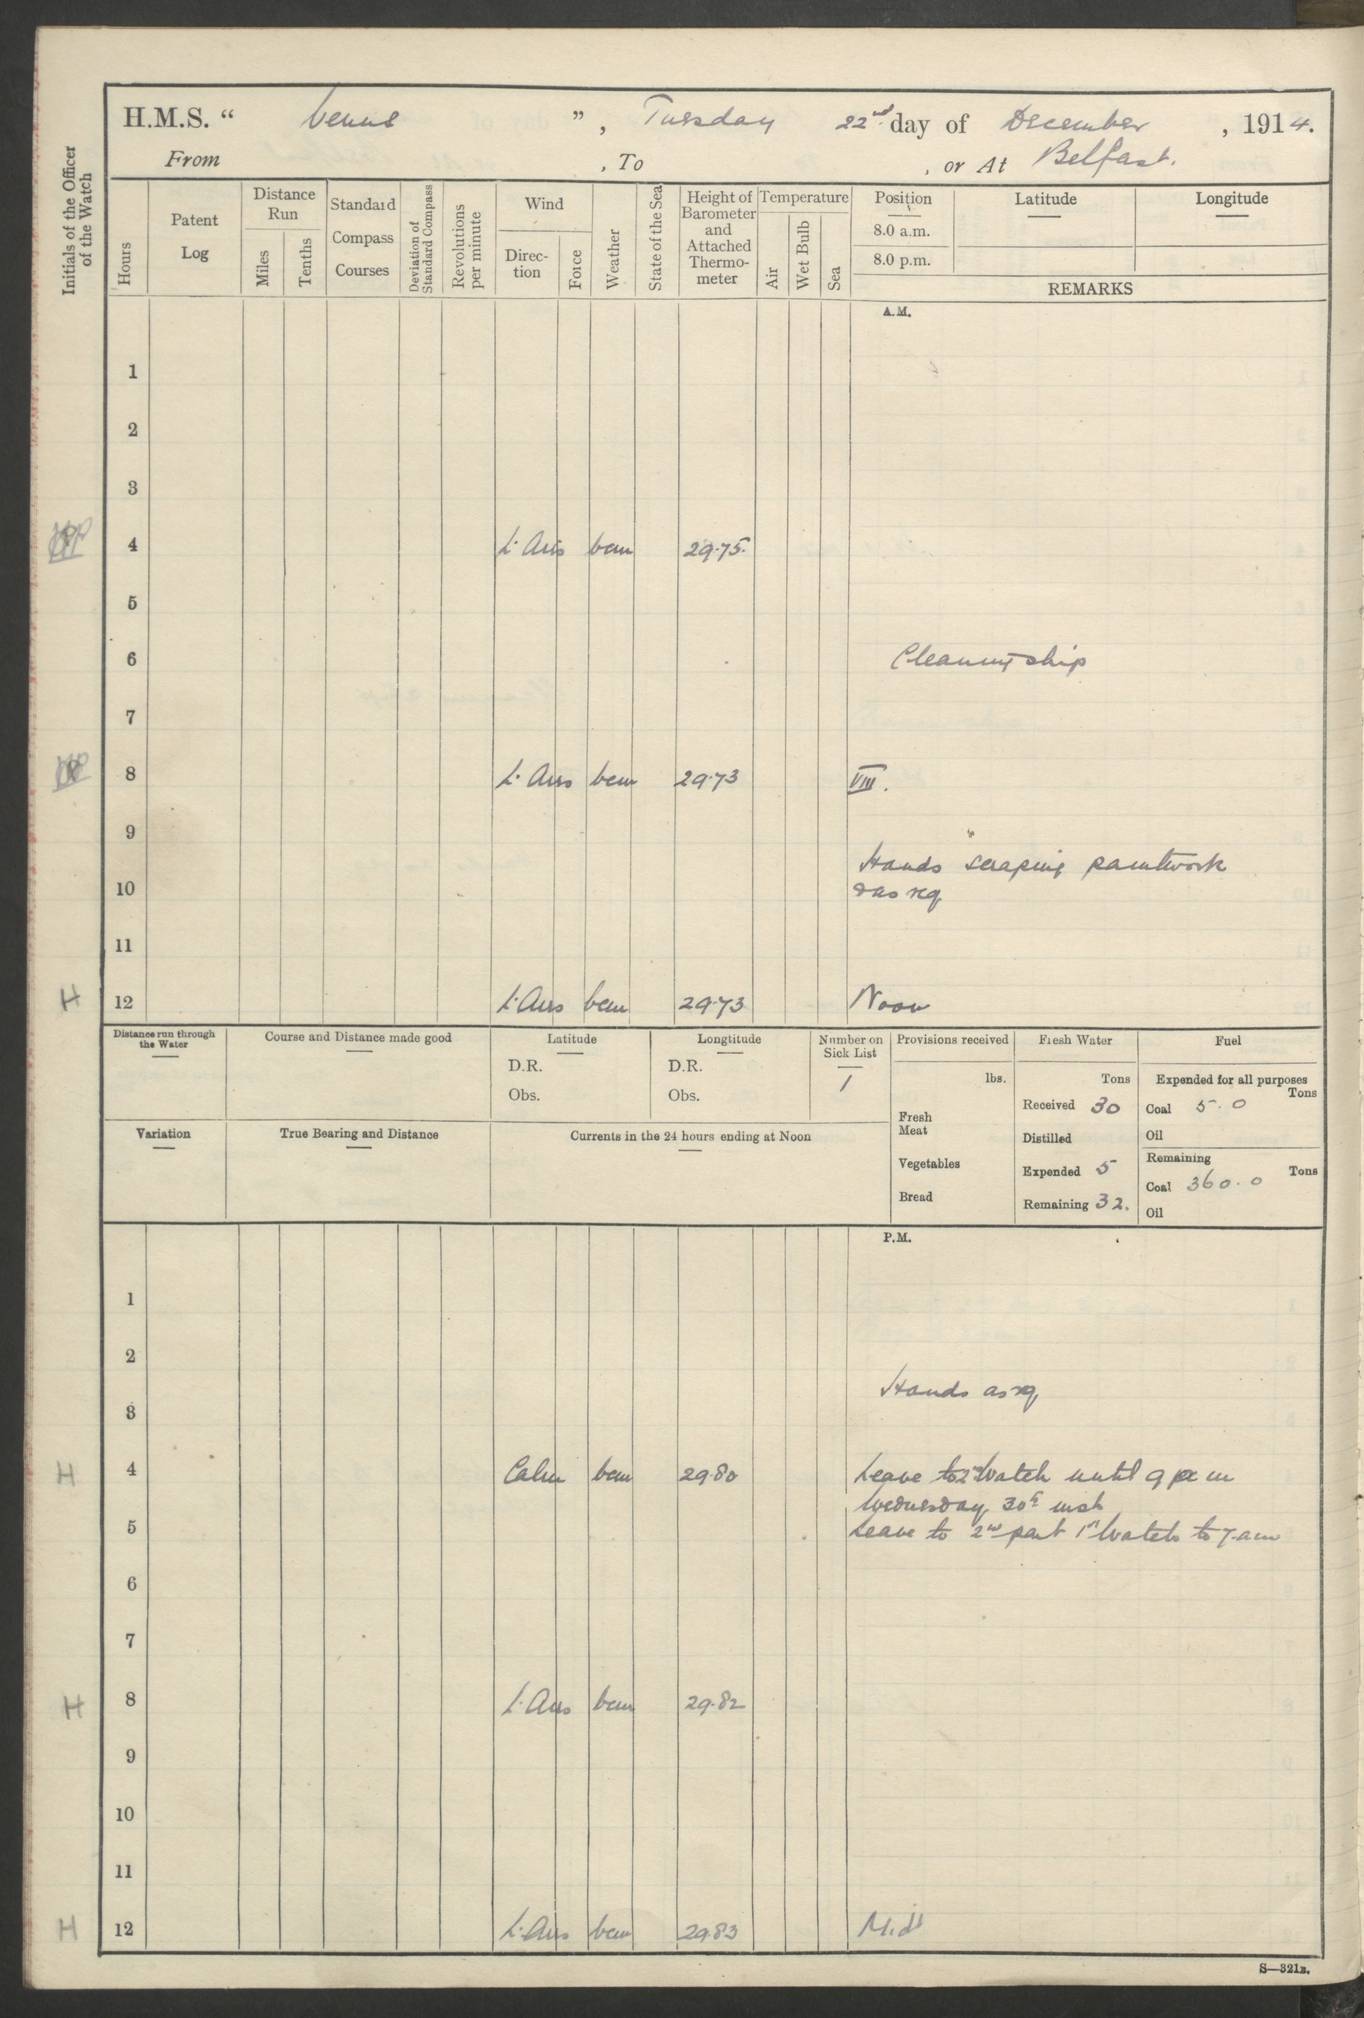 H.M.S. “ Venus ”, Tuesday 22nd day of December, 1914.
From , To , or At Belfast.
Initials of the Officer of the Watch
Hours
Patent Log
Distance Run
Miles
Tenths
Standard Compass Courses
Deviation of Standard Compass
Revolutions per minute
Wind
Direction
Force
Weather
State of the Sea
Height of Barometer and Attached Thermometer
Temperature
Air
Wet Bulb
Sea
Position
8.0 a.m.
8.0 p.m.
Latitude
Longitude
REMARKS
A.M.
1
2
3
4 L. Airs bcm 29.75.
5
6 Cleaning ship
7
8 L. Airs bcm 29.73 VIII.
9
Hands scraping paintwork
10 & as req
11
H 12 L. Airs bcm 29.73 Noon
Distance run through the Water
Course and Distance made good
Latitude
D.R.
Obs.
Longtitude
D.R.
Obs.
Number on Sick List
1
Provisions received
lbs.
Fresh Meat
Vegetables
Bread
Fresh Water
Tons
Received 30
Distilled
Expended 5
Remaining 32.
Fuel
Expended for all purposes
Tons
Coal 5.0
Oil
Remaining
Tons
Coal 360.0
Oil
Variation
True Bearing and Distance
Currents in the 24 hours ending at Noon
P.M.
1
2
Hands as req
3
H 4 Calm bcm 29.80 Leave to 2nd Watch until 9 pm
Wednesday 30th inst
5 Leave to 2nd part 1st Watch to 7.am
6
7
H 8 L. Airs bcm 29.82
9
10
11
H 12 L. Airs bcm 29.83 Midt
S—321B.